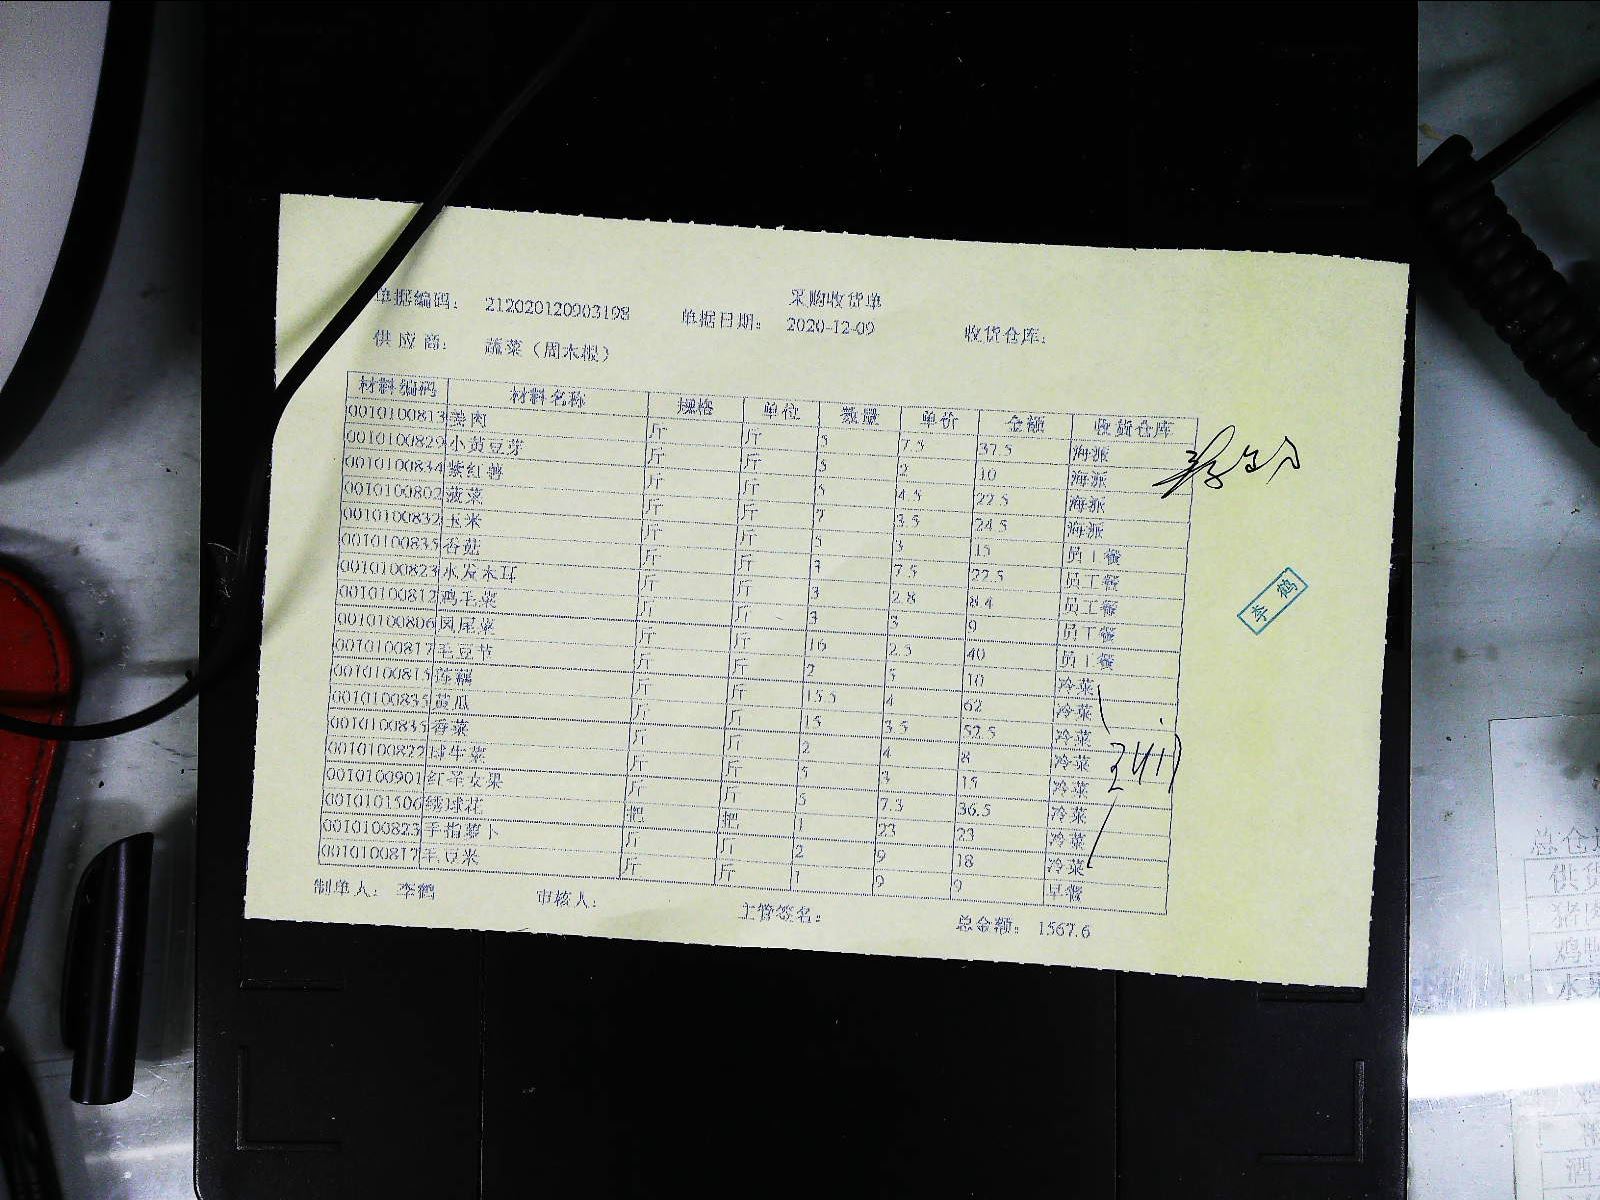 采购收货单
单据编码： 212020120903198 单据日期： 2020-12-09 收货仓库：
供应商： 蔬菜（周木根）
材料编码 材料名称 规格 单位 数量 单价 金额 收货仓库
0010100813 姜肉 斤 斤 5 7.5 37.5 海派
0010100829 小黄豆芽 斤 斤 5 2 10 海派
0010100834 紫红薯 斤 斤 5 4.5 22.5 海派
0010100802 菠菜 斤 斤 7 3.5 24.5 海派
0010100832 玉米 斤 斤 5 3 15 员工餐
0010100835 香菇 斤 斤 3 7.5 22.5 员工餐
0010100823 水发木耳 斤 斤 3 2.8 8.4 员工餐
0010100812 鸡毛菜 斤 斤 3 3 9 员工餐
0010100806 凤尾菜 斤 斤 16 2.5 40 员工餐
0010100817 毛豆节 斤 斤 2 5 10 冷菜
0010100815 莲藕 斤 斤 15.5 4 62 冷菜
0010100835 黄瓜 斤 斤 15 3.5 52.5 冷菜
0010100835 香菜 斤 斤 2 4 8 冷菜
0010100822 球生菜 斤 斤 5 3 15 冷菜
0010100901 红圣女果 斤 斤 5 7.3 36.5 冷菜
0010101506 绣球花 把 把 1 23 23 冷菜
0010100823 手指萝卜 斤 斤 2 9 18 冷菜
0010100817 毛豆米 斤 斤 1 9 9 早餐
制单人： 李鹤 审核人： 主管签名： 总金额： 1567.6
李鹤
总仓
供货
猪肉
水果
酒